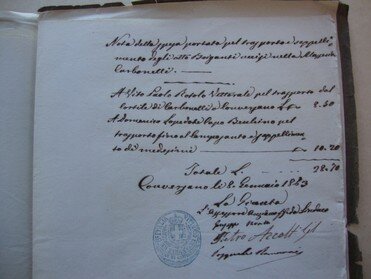 Nota della spesa portata pel trasporto e seppelli-
mento degli otto Briganti uccisi nella Masseria
Carbonelli.
A Vito Paolo Rotolo Vetturale pel trasporto dal
cortile di Carbonelli a Conversano L. 8.50
A Domenico Lopedote Capo Becchino pel
trasporto fino al Camposanto e seppellimen-
to de medesimi 10.20
Totale L. 28.70
Conversano li 8. Gennaio 1863
La Giunta
L'Assessore Anziano ff. da Sindaco